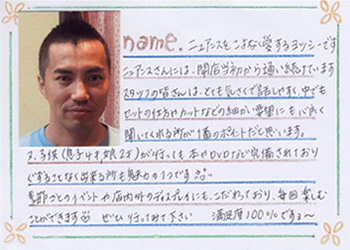 name. ニュアンスをこよなく愛するヨッシーです
ニュアンスさんには、開店当初から通い続けています
スタッフの皆さんは、とても気さくで話しやすく、中でも
セットの仕方やカットなどの細かい要望にも心良く
聞いてくれる所が1番のポイントだと思います。
又、子供(息子4才、娘2才)が行っても本やDVDなど完備されており
ぐずることなく出来る所も魅力の1つです
季節ごとのイベントや店内外のディスプレイにも、こだわっており、毎回楽しむ
ことができます ぜひ行ってみて下さい 満足度100%ですョ〜